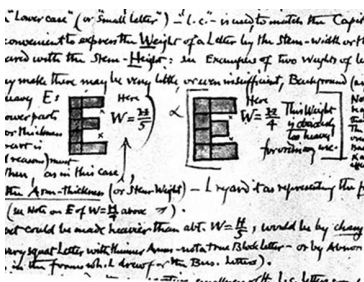 "Lower case" (or Small letter") – l.c. – is used to match the Capit
convenient to express the Weight of a Letter by the Stem-width or th
ared with the Stem-Height: in Examples of two Weights of L
y make there may be very little, or even insufficient, Background (in
heavy E:
Here W = H/5
Here W = H/4
This Weight is decidedly too heavy for ordinary use.
ower parts
or thickness
part is
(reason) must
then, as in this case,
the Arm-thickness (or Stem-Weight) – I regard it as representing the p
(in Note on E of W = H/5 above).
not could be made heavier than abt. W = H/5, would be by chang
very squat Letter with thinner Arms – not a true Block letter – or by Abnor
in the forms which I drew for the Bus. letters).
l.c. letters